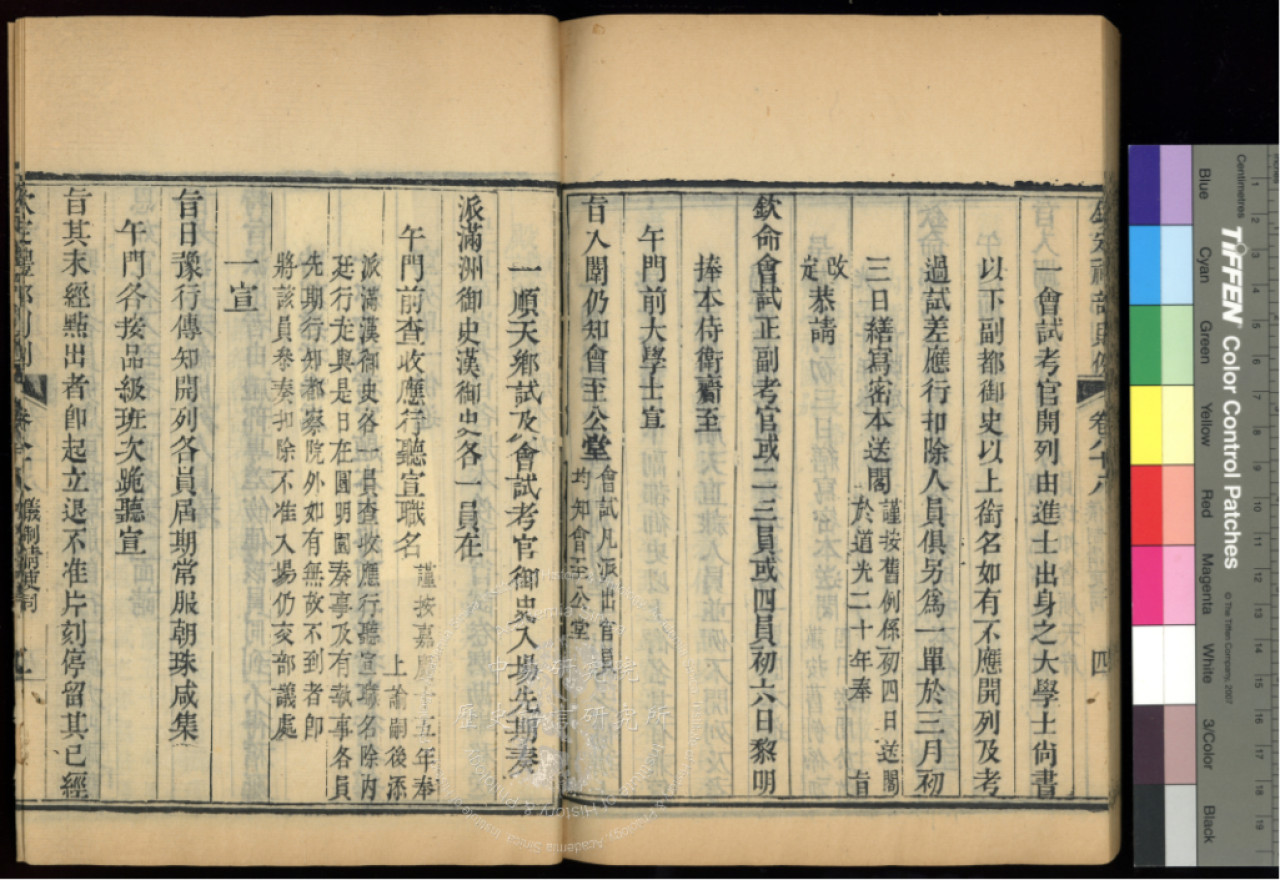 欽定禮部則例 卷八十八 四
一會試考官開列由進士出身之大學士尙書
以下副都御史以上銜名如有不應開列及考
過試差應行扣除人員俱另爲一單於三月初
三日繕寫密本送閣謹按舊例係初四日送閣
於道光二十年奉 旨
改
定恭請
欽命會試正副考官或二三員或四員初六日黎明
捧本侍衛齎至
午門前大學士宣
旨入闈仍知會至公堂會試凡派出官員
均知會至公堂
一順天鄉試及會試考官御史入場先期奏
派滿洲御史漢御史各一員在
午門前查收應行聽宣職名謹按嘉慶十五年奉
上諭嗣後添
派滿漢御史各一員查收應行聽宣職名除內
廷行走與是日在圓明園奏事及有執事各員
先期行知都察院外如有無故不到者卽
將該員叅奏扣除不准入場仍交部議處
一宣
旨日豫行傳知開列各員屆期常服朝珠咸集
午門各按品級班次跪聽宣
旨其未經點出者卽起立退不准片刻停留其已經
欽定禮部則例 儀制淸吏司
Centimetres
TIFFEN Color Control Patches
© The Tiffen Company, 2007
Blue
Cyan
Green
Yellow
Red
Magenta
White
3/Color
Black